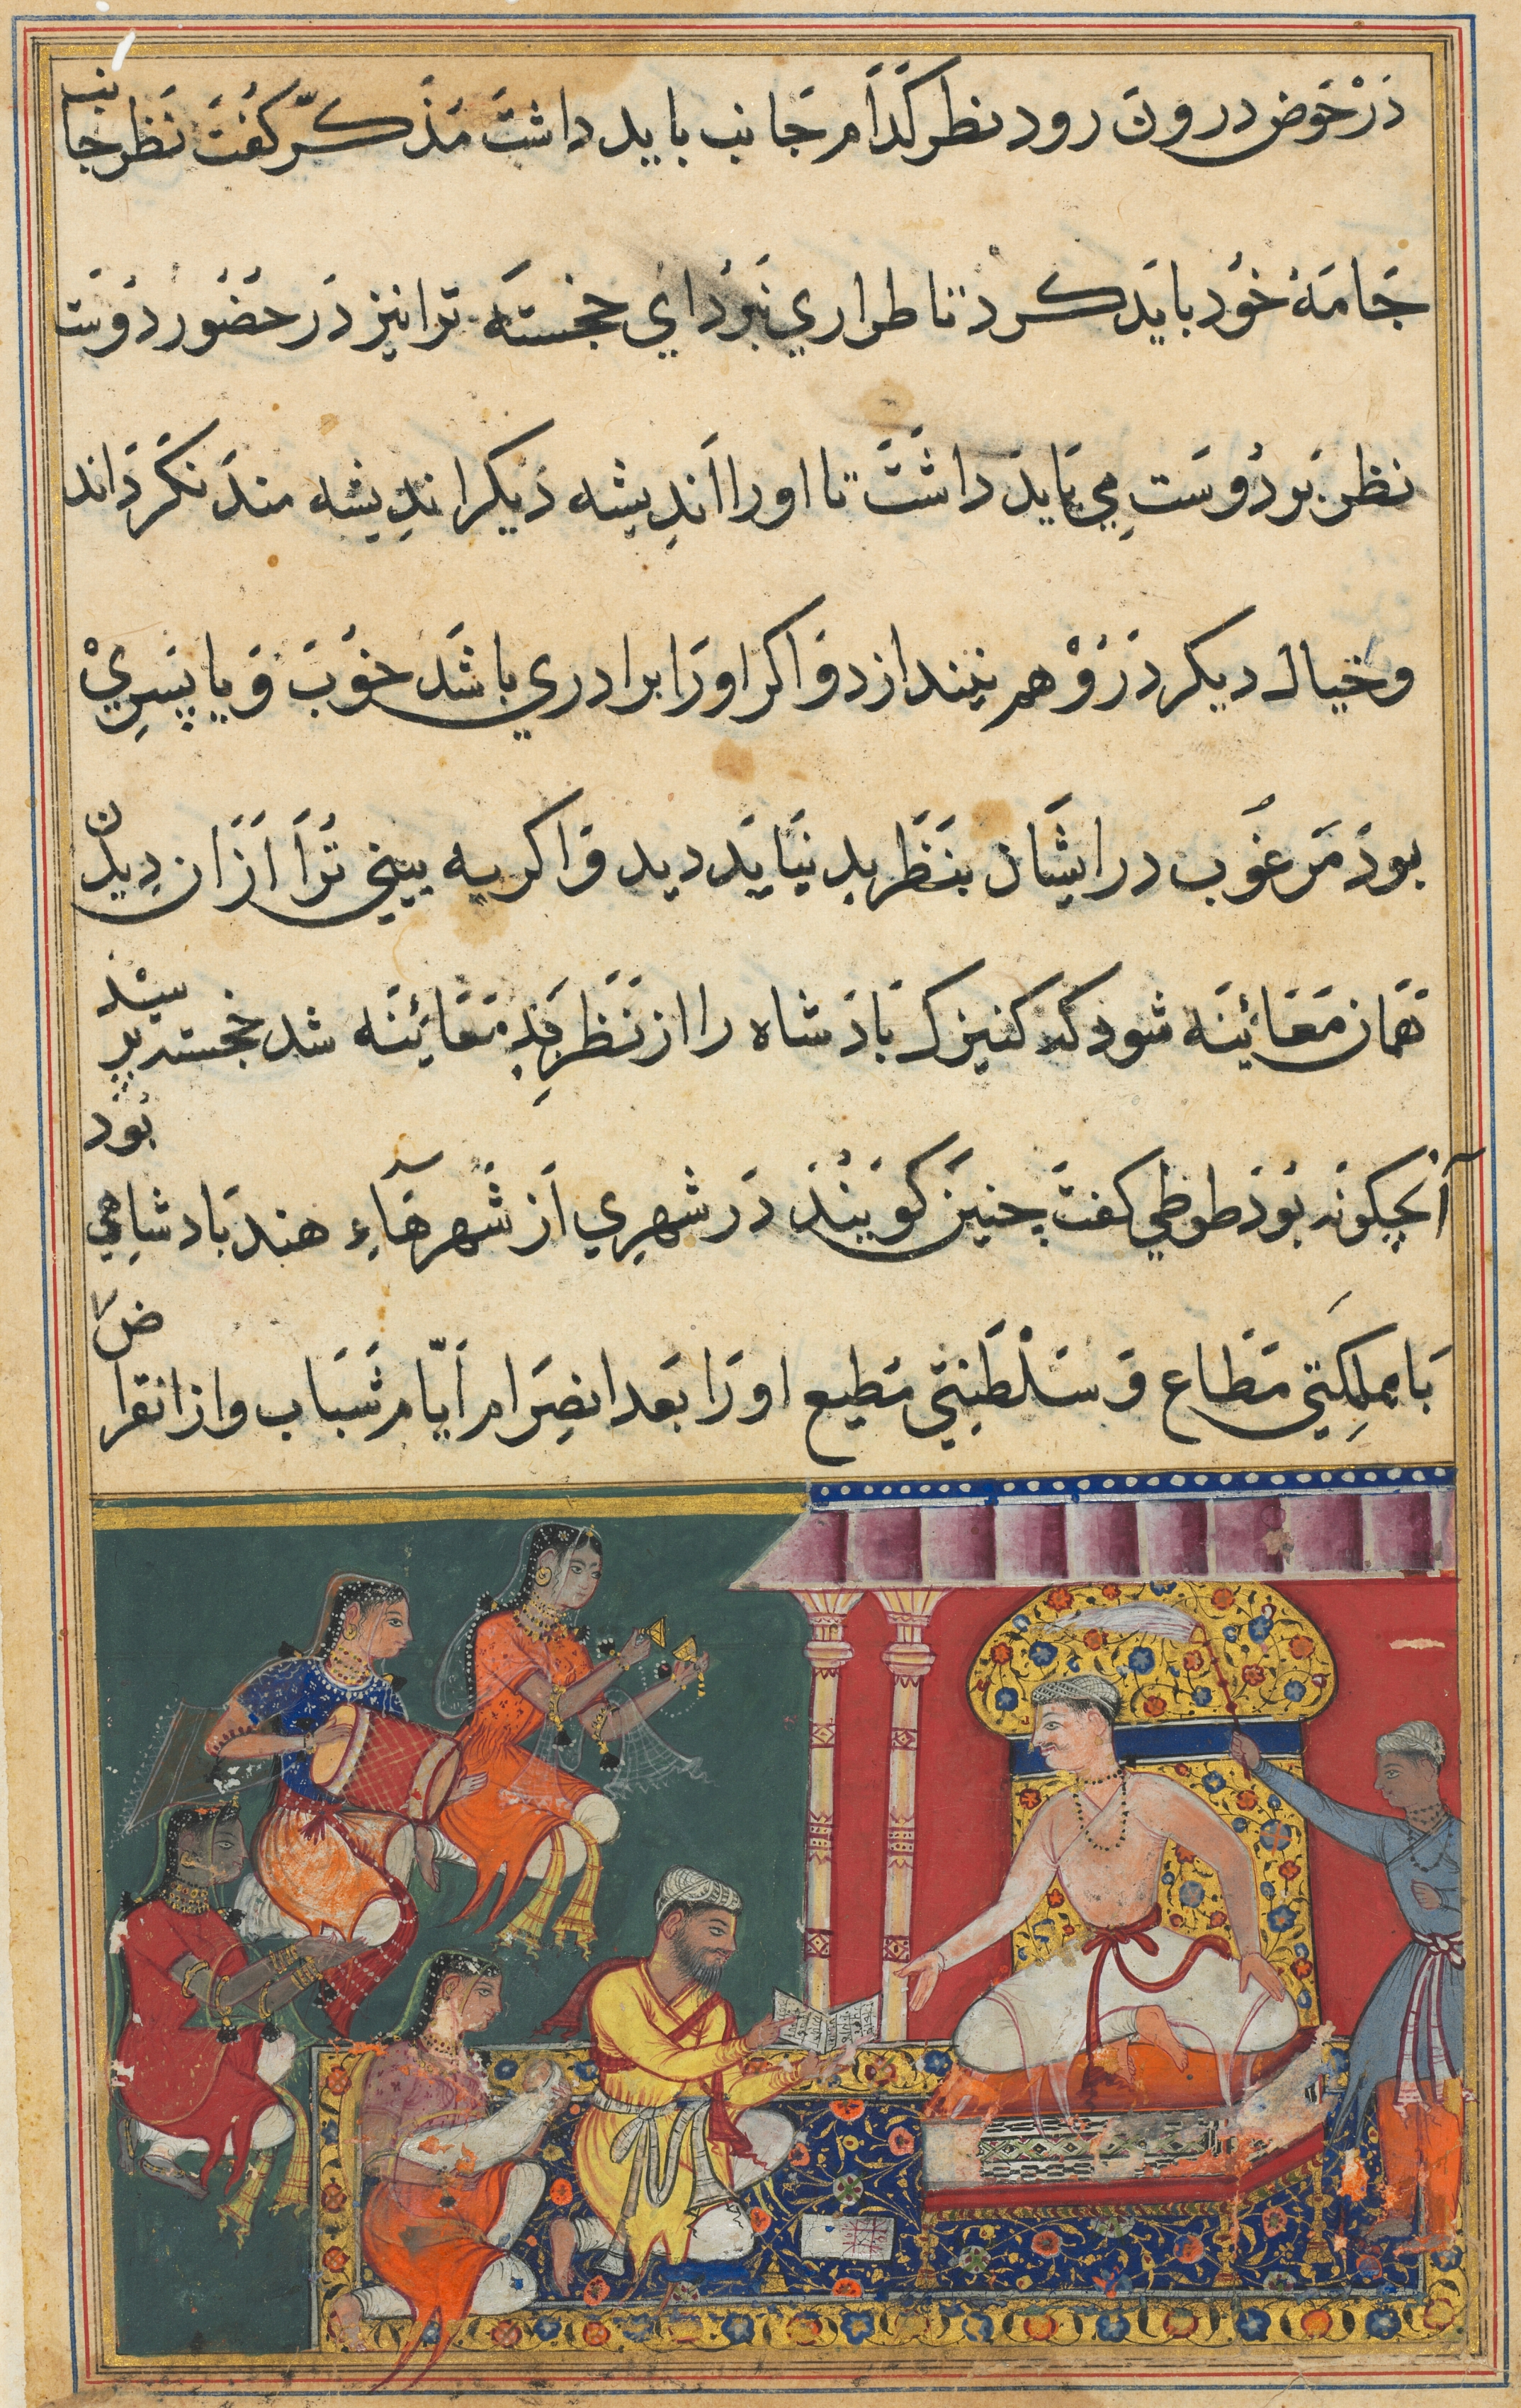 در حوض درون رود نظر كدام جانب بايد داشت مذكّر كفت نظر جانب
جامهٔ خود بايد كرد تا طراري نبرد اي خجسته ترا نيز در حضور دوست
نظر بر دوست مي بايد داشت تا او را انديشه ديكر انديشه مند نكرداند
و خيال ديكر در وهم نيندازد و اكر او را برادري باشد خوب و يا پسري
بود مرغوب در ايشان بنظر بد نيايد ديد و اكر به بيني ترا از ان ديدن
همان معائينه شود كه كنيزك بادشاه را از نظر بد معائينه شد خجسته پرسيد
آنچكونه بود طوطي كفت چنين كويند در شهري از شهرهاء هند بادشاهي بود
با مملكتي مطاع و سلطنتي مطيع او را بعد انصرام ايّام شباب و از انقراض